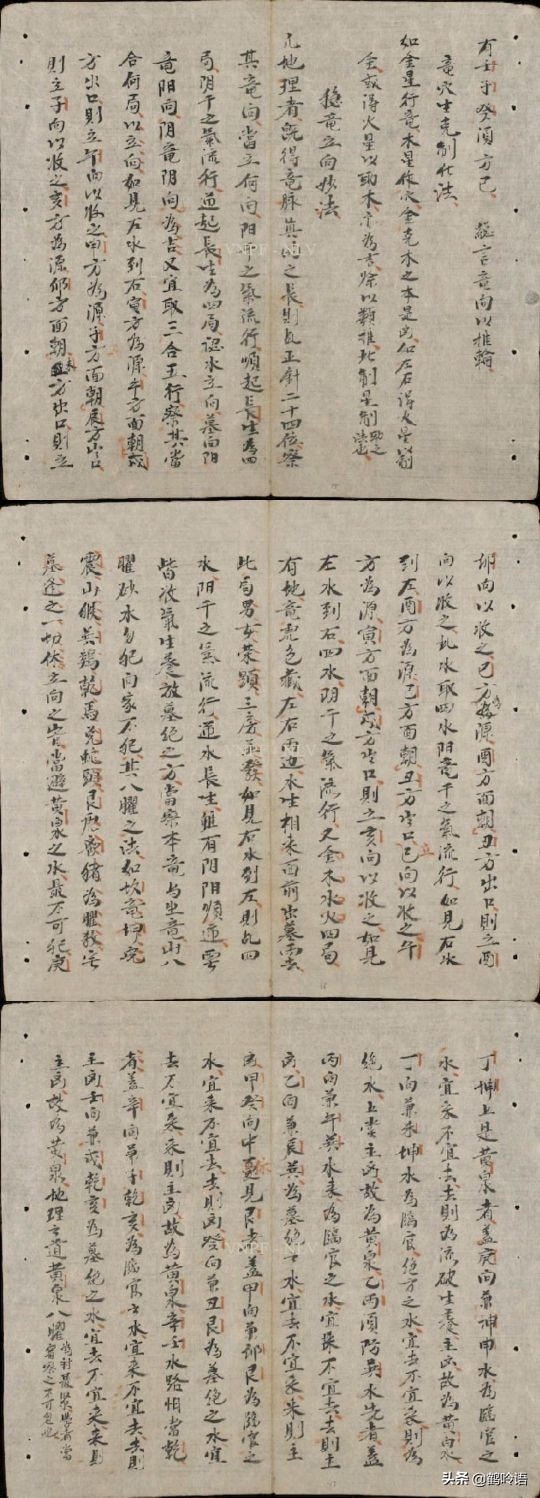 有壬子癸須方巳 難言竜向以推輪
竜穴生克制化法
如金星行竜木星作穴金克木之本是凶如左右得火星制
金或得火星以助木亦為吉餘以類推此制星制
穩竜立向妙法
凡地理者既得竜脉真的之長則凡正針二十四位察
其竜向當立何向阳干之氣流行順起長生為四
局阴干之氣流行逆起長生為四局認水立向墓向阳
竜阳向阴竜阴向為吉又宜取三合五行察其當
合何局以立向如見左水到右寅方為源午方面朝戌
方出口則立午向以收之申方為源子方面朝辰方出口
則立子向以收之亥方為源卯方面朝未方出口則立
卯向以收之巳方為源酉方面朝丑方出口則立酉
向以收之此水取四水阳竜干之氣流行如見右水
到左酉方為源巳方面朝丑方出口立巳向以收之午
方為源寅方面朝戌方出口則立亥向以收之如見
左水到右四水阴干之氣流行又金木水火四局
有地竜虎包裁左右两边水生相来面前出墓而去
此局男女荣顕三房並發如見右水到左則凡四
水阴干之氣流行逆水長生雖有阴阳順逆要
皆收氣生養放墓绝之方當察本竜与坐竜山八
曜砂水多犯向家不犯其八曜之法如坎竜坤兔
震山猴巽鷄乾馬兌蛇頭艮虎离猪為曜殺宅
墓逢之一切休立向之宅當避黄泉之水最不可犯庚
丁坤上是黄泉者盖庚向兼坤申水為臨官之
水宜来不宜去去則為流破生養主凶故為黄泉水
丁向兼未坤水為臨官绝方之水宜去不宜来則為
绝水上堂主凶故為黄泉乙丙須防巽水先者盖
丙向兼午巽水来為臨官之水宜来不宜去去則主
凶乙向兼辰巽為墓绝之水宜去不宜来来則主
凶甲癸向中更見艮者盖甲向兼卯艮為臨官之
水宜来不宜去去則凶癸向兼丑艮為墓绝之水宜
去不宜来来則主凶故為黄泉辛壬水路怕當乾
者盖辛向兼子乾亥為臨官之水宜来不宜去去則
主凶壬向兼戌乾亥為墓绝之水宜去不宜来来則
主凶故為黄泉地理之道黄泉八曜
V.NPF-NDV
头条 @鹤吟语